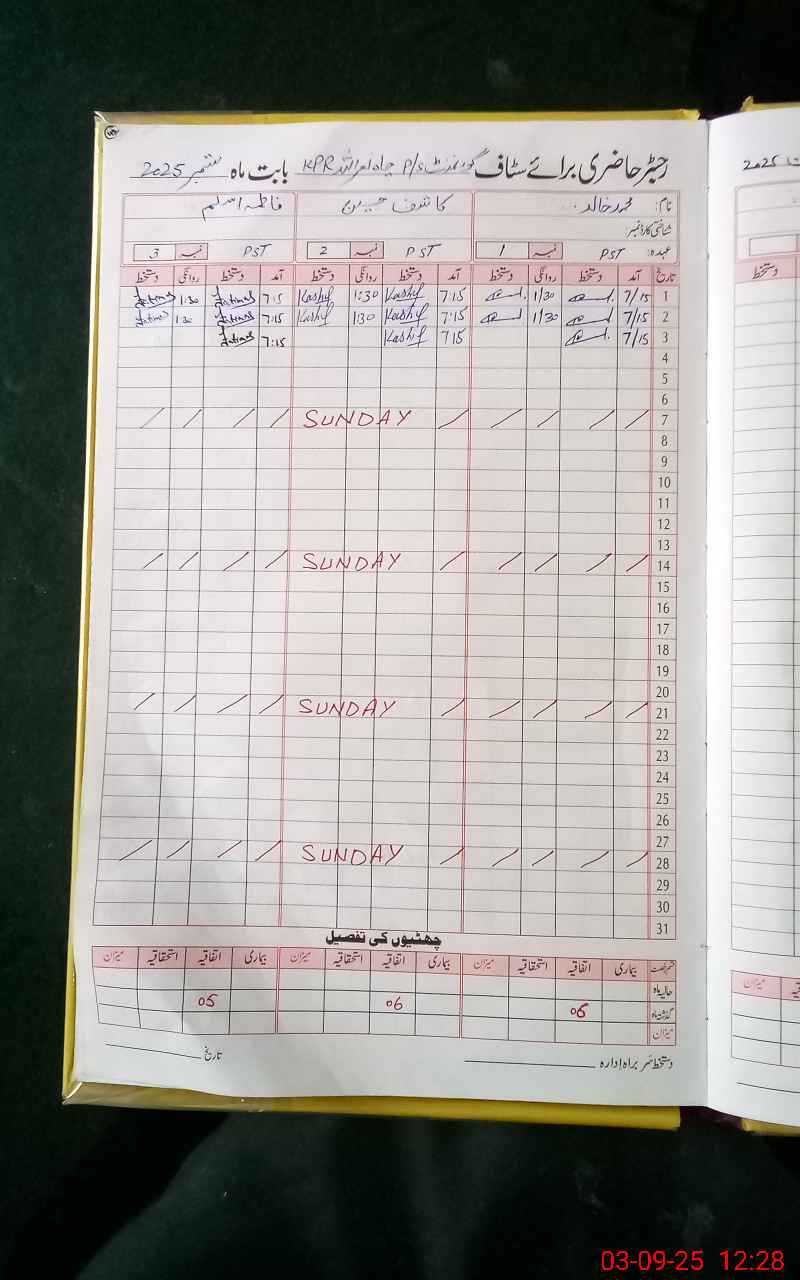 رجسٹر حاضری برائے سٹاف گورنمنٹ P/S چاہ نصراللہ KPR بابت ماہ ستمبر 2025
نام: محمد خالد کاشف حسین فاطمہ اسلم
شناختی کارڈ نمبر:
عہدہ: PST نمبر 1 PST نمبر 2 PST نمبر 3
تاریخ آمد دستخط روانگی دستخط آمد دستخط روانگی دستخط آمد دستخط روانگی دستخط
1 7/15 1/30 7:15 Kashif 1:30 Kashif 7:15 Fatima 1:30 Fatima
2 7/15 1/30 7:15 Kashif 1:30 Kashif 7:15 Fatima 1:30 Fatima
3 7/15 7:15 Kashif 7:15 Fatima
4
5
6
7 SUNDAY
8
9
10
11
12
13
14 SUNDAY
15
16
17
18
19
20
21 SUNDAY
22
23
24
25
26
27
28 SUNDAY
29
30
31
چھٹیوں کی تفصیل
قسم رخصت بیماری اتفاقیہ استحقاقیہ میزان بیماری اتفاقیہ استحقاقیہ میزان بیماری اتفاقیہ استحقاقیہ میزان
حالیہ ماہ
گذشتہ ماہ 06 06 05
میزان
دستخط سربراہ ادارہ تاریخ
2025
دستخط
میزان
03-09-25 12:28